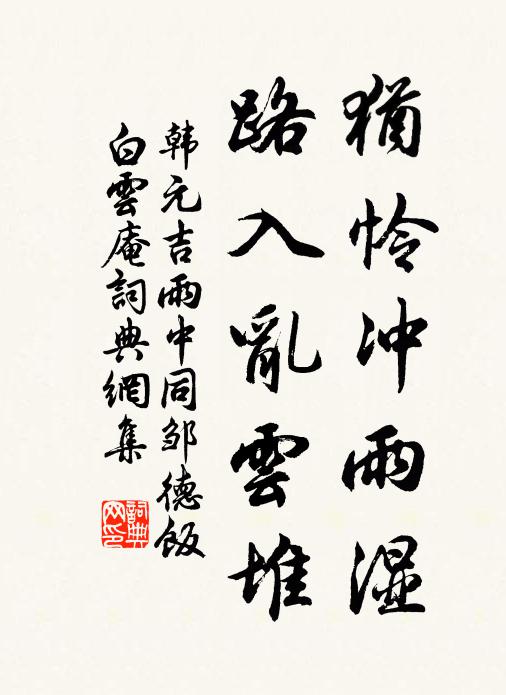 猶怜冲雨湿
路入亂雲堆
韩元吉雨中同邹德飯
白雲庵詞典網集
詞典
网印